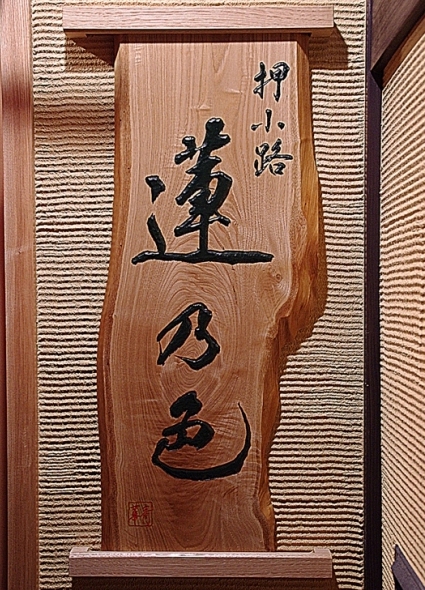 押小路
蓮乃色